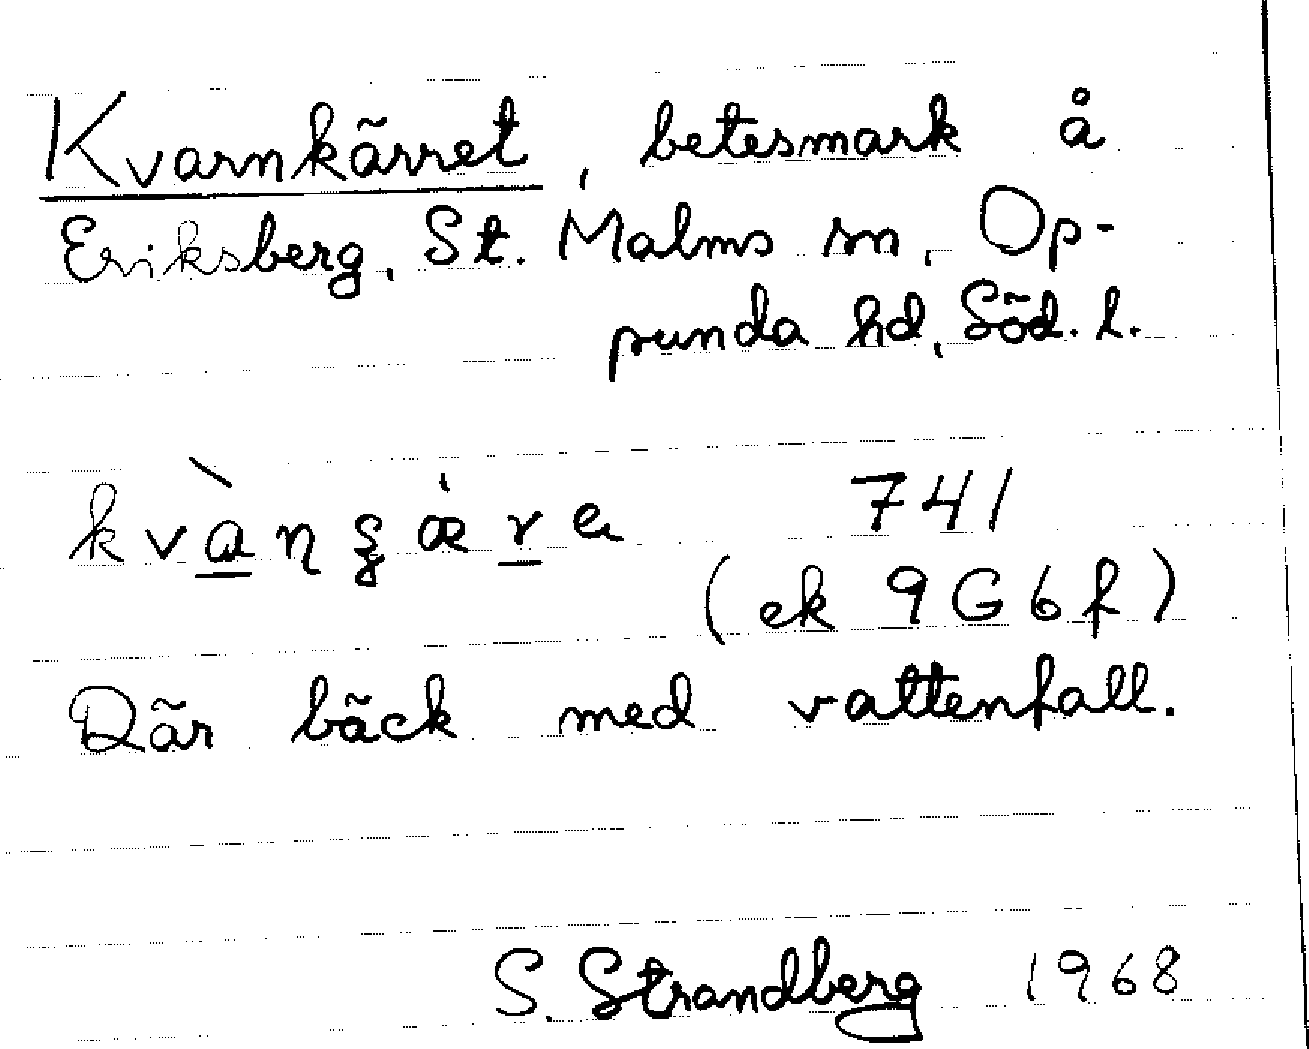 Kvarnkärret, betesmark å
Eriksberg, St. Malms sn, Op-
punda hd, Söd. l.
kvàn̥ʂæ̀re 741
(ek 9G6f)
Där bäck med vattenfall.
S. Strandberg 1968